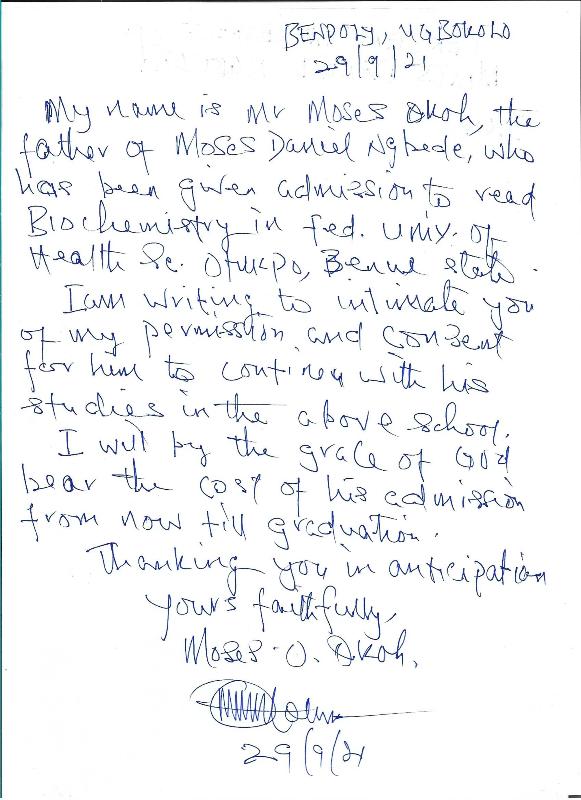 BENPOLY, UGBOKOLO
29/9/21
My name is Mr Moses Okoh, the
father of Moses Daniel Ngbede, who
has been given admission to read
Biochemistry in Fed. Univ. of
Health Sc. Otukpo, Benue state.
I am writing to intimate you
of my permission and consent
for him to continue with his
studies in the above school.
I will by the grace of God
bear the cost of his admission
from now till graduation.
Thanking you in anticipation
Yours faithfully,
Moses O. Okoh.
29/9/21